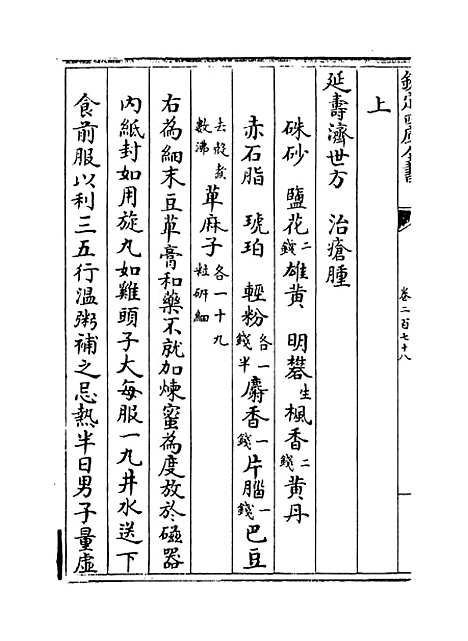 欽定四庫全書
卷二百七十八
上
延壽濟世方　治瘡腫
硃砂　鹽花二錢　雄黃　明礬生　楓香二錢　黃丹
赤石脂　琥珀　輕粉各一錢半　麝香一錢　片腦一錢　巴豆
去殼煮數沸　萆麻子各一十九粒研細
右為細末豆萆膏和藥不就加煉蜜為度放於磁器
內紙封如用旋丸如雞頭子大每服一丸井水送下
食前服以利三五行溫粥補之忌熱半日男子量虛